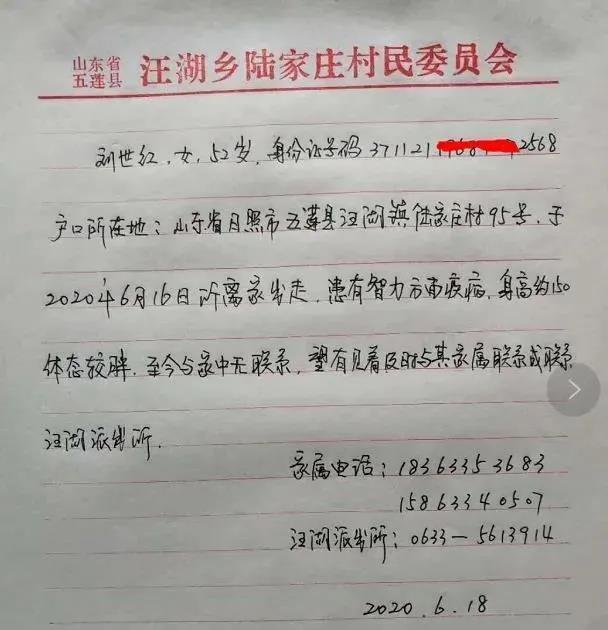 山东省
五莲县
汪湖乡陆家庄村民委员会
刘世红，女，52岁，身份证号码371121 2568
户口所在地：山东省日照市五莲县汪湖镇陆家庄村95号，于
2020年6月16日所离家出走，患有智力方面疾病，身高约150
体态较胖，至今与家中无联系，望有见着及时与其家属联系或联系
汪湖派出所.
家属电话：18363353683
15863340507
汪湖派出所：0633－5613914
2020.6.18